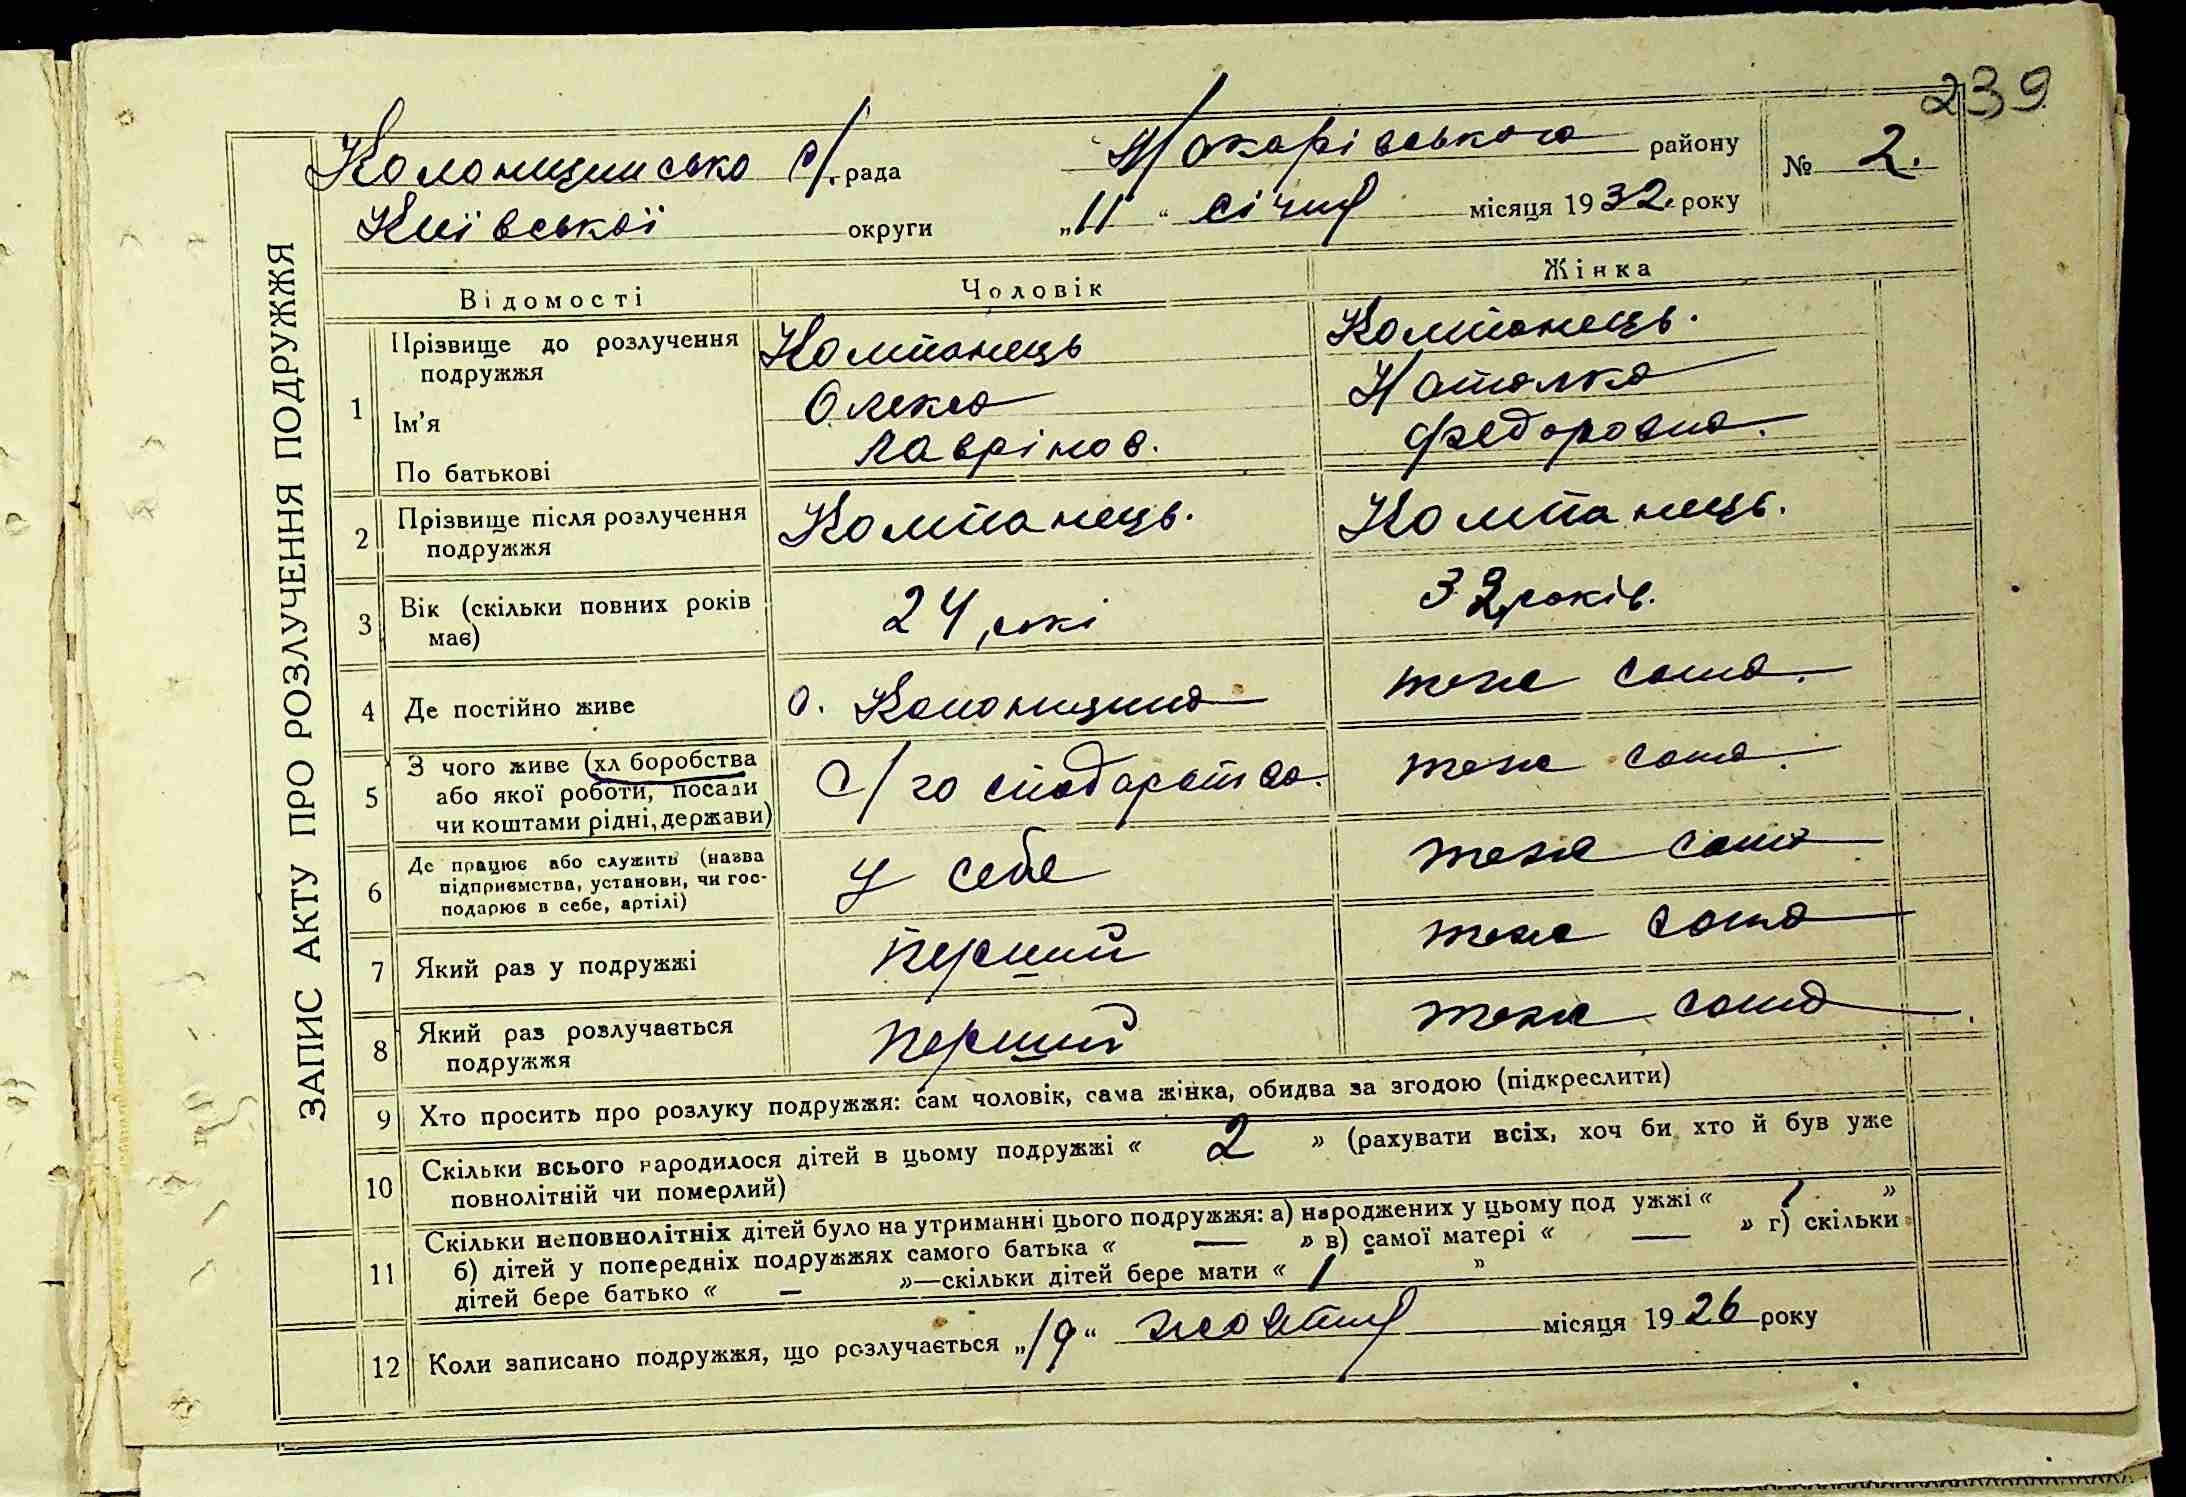 239
Колонщинсько с/. рада Макарівського району № 2.
Київської округи „11“ січня місяця 1932. року
ЗАПИС АКТУ ПРО РОЗЛУЧЕННЯ ПОДРУЖЖЯ
Відомості Чоловік Жінка
1 Прізвище до розлучення Компанець Компанець.
подружжя
Ім'я Олекса Наталка
По батькові Лаврінов. Федоровна.
2 Прізвище після розлучення Компанець. Компанець.
подружжя
3 Вік (скільки повних років 24, рокі 32 років.
має)
4 Де постійно живе с. Колонщина теж сама.
5 З чого живе (хл боробства с/господарства. теж сама.
або якої роботи, посади
чи коштами рідні, держави)
6 Де працює або служить (назва у себе теж сама
підприємства, установи, чи гос-
подарює в себе, артілі)
7 Який раз у подружжі перший теж сама
8 Який раз розлучається перший теж сама.
подружжя
9 Хто просить про розлуку подружжя: сам чоловік, сама жінка, обидва за згодою (підкреслити)
10 Скільки всього народилося дітей в цьому подружжі « 2 » (рахувати всіх, хоч би хто й був уже
повнолітній чи померлий)
11 Скільки неповнолітніх дітей було на утриманні цього подружжя: а) народжених у цьому под ужжі « 1 »
б) дітей у попередніх подружжях самого батька « — » в) самої матері « — » г) скільки
дітей бере батько « — »—скільки дітей бере мати « 1 »
12 Коли записано подружжя, що розлучається „19“ жовтня місяця 1926 року